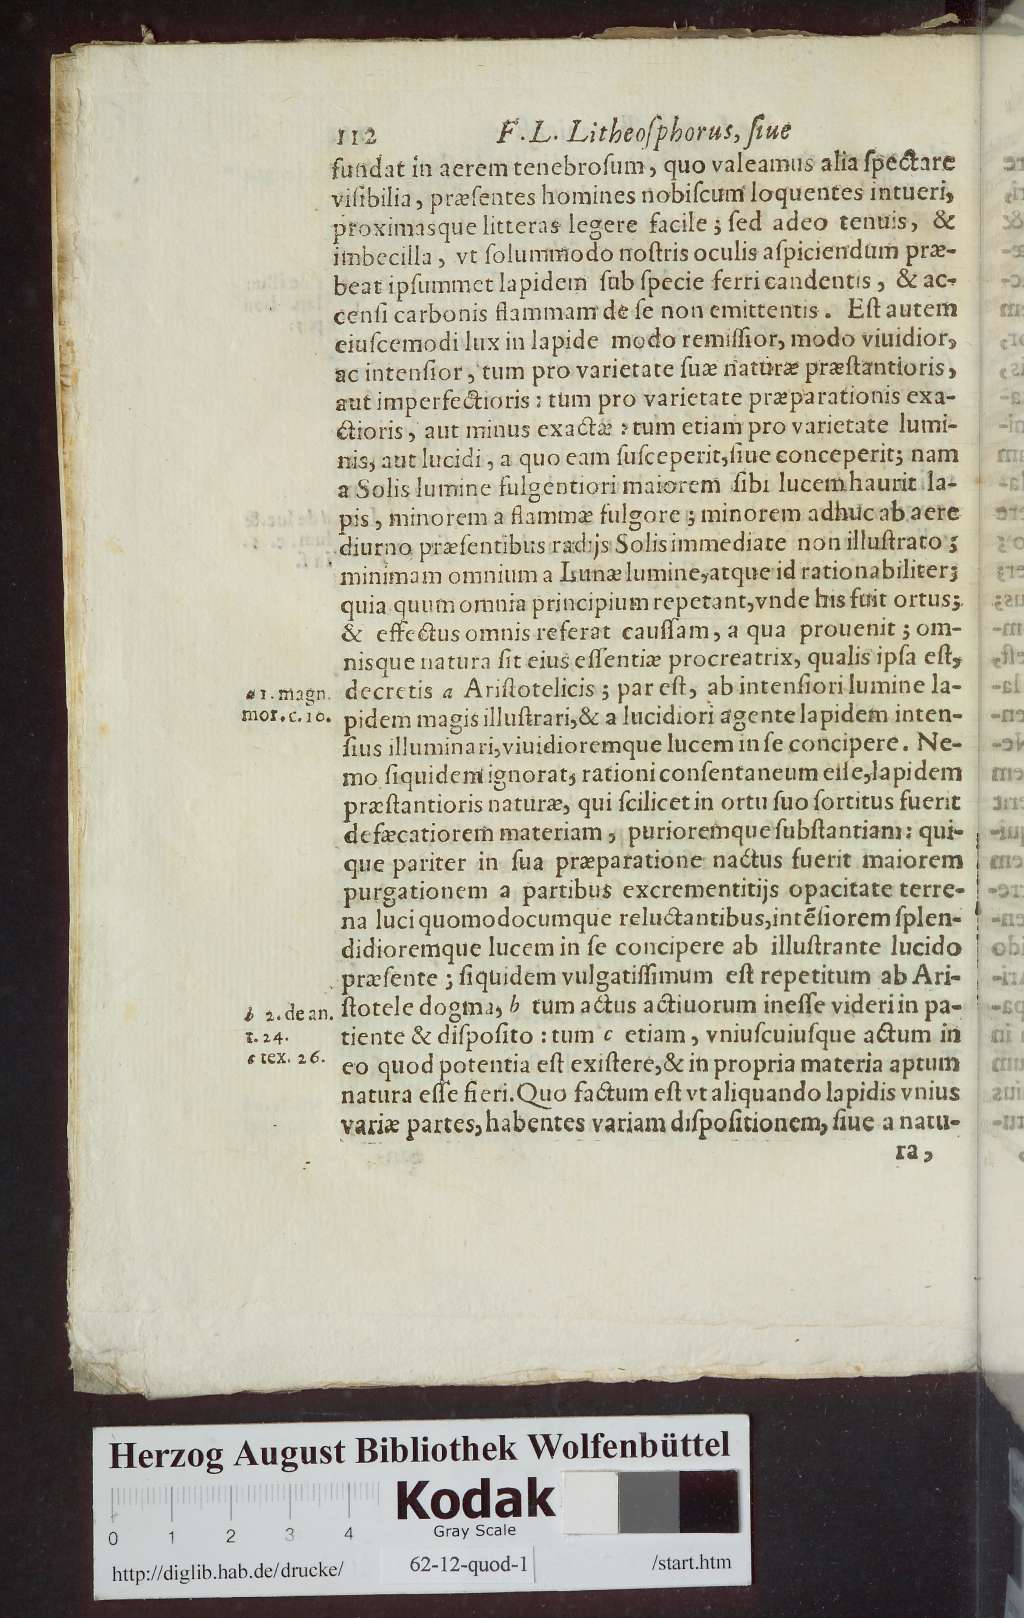 112 F. L. Litheoſphorus, ſiue
fundat in aerem tenebroſum, quo valeamus alia ſpectare
viſibilia, præſentes homines nobiſcum loquentes intueri,
proximasque litteras legere facile; ſed adeo tenuis, &
imbecilla, vt ſolummodo noſtris oculis aſpiciendum præ-
beat ipſummet lapidem ſub ſpecie ferri candentis, & ac-
cenſi carbonis flammam de ſe non emittentis. Eſt autem
eiuſcemodi lux in lapide modo remiſſior, modo viuidior,
ac intenſior, tum pro varietate ſuæ naturæ præſtantioris,
aut imperfectioris: tum pro varietate præparationis exa-
ctioris, aut minus exactæ: tum etiam pro varietate lumi-
nis, aut lucidi, a quo eam ſuſceperit, ſiue conceperit; nam
a Solis lumine fulgentiori maiorem ſibi lucem haurit la-
pis, minorem a flammæ fulgore; minorem adhuc ab aere
diurno præſentibus radijs Solis immediate non illuſtrato;
minimam omnium a Lunæ lumine, atque id rationabiliter;
quia quum omnia principium repetant, vnde his fuit ortus;
& effectus omnis referat cauſſam, a qua prouenit; om-
nisque natura ſit eius eſſentiæ procreatrix, qualis ipſa eſt,
a 1. magn. decretis a Ariſtotelicis; par eſt, ab intenſiori lumine la-
mor. c. 10. pidem magis illuſtrari, & a lucidiori agente lapidem inten-
ſius illuminari, viuidioremque lucem in ſe concipere. Ne-
mo ſiquidem ignorat, rationi conſentaneum eſſe, lapidem
præſtantioris naturæ, qui ſcilicet in ortu ſuo ſortitus fuerit
defæcatiorem materiam, purioremque ſubſtantiam: qui-
que pariter in ſua præparatione nactus fuerit maiorem
purgationem a partibus excrementitijs opacitate terre-
na luci quomodocumque reluctantibus, intẽſiorem ſplen-
didioremque lucem in ſe concipere ab illuſtrante lucido
præſente; ſiquidem vulgatiſſimum eſt repetitum ab Ari-
b 2. de an. ſtotele dogma, b tum actus actiuorum ineſſe videri in pa-
t. 24. tiente & diſpoſito: tum c etiam, vniuſcuiuſque actum in
c tex. 26. eo quod potentia eſt exiſtere, & in propria materia aptum
natura eſſe fieri. Quo factum eſt vt aliquando lapidis vnius
variæ partes, habentes variam diſpoſitionem, ſiue a natu-
ra,
Herzog August Bibliothek Wolfenbüttel
Kodak
Gray Scale
0 1 2 3 4
http://diglib.hab.de/drucke/ 62-12-quod-1 /start.htm